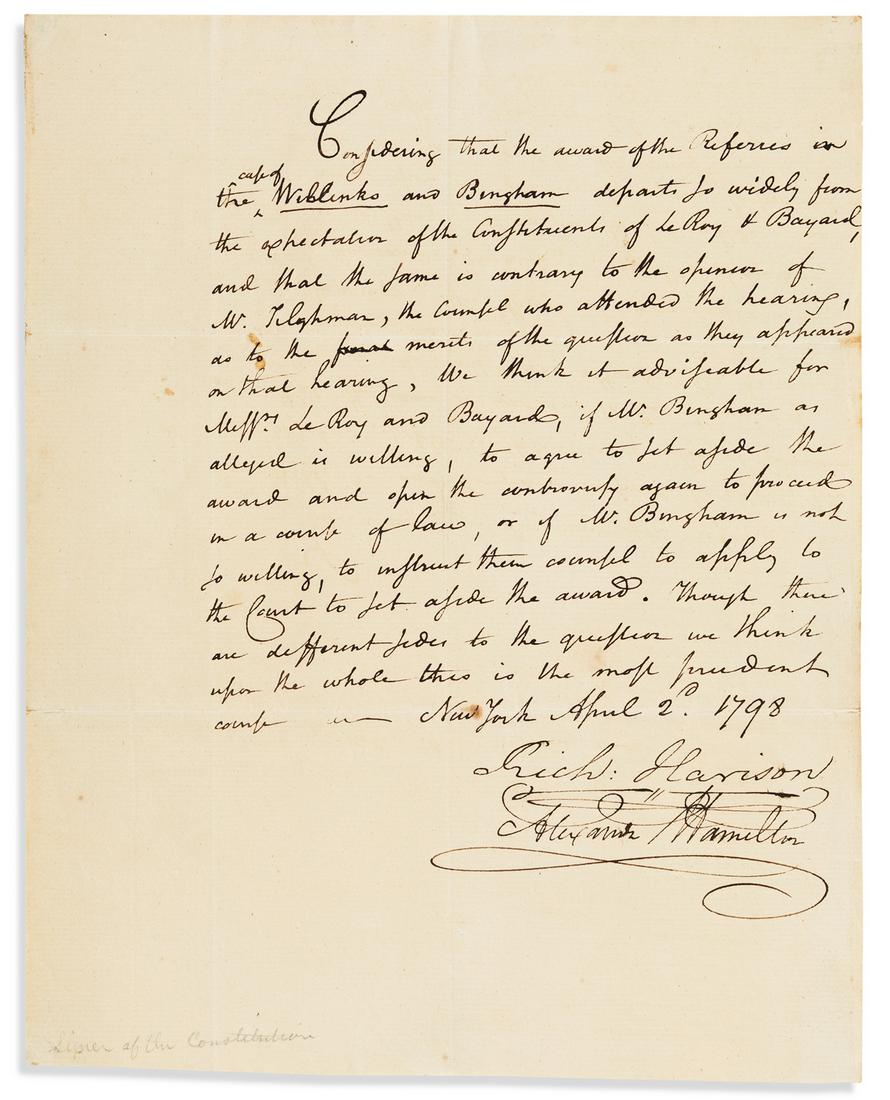 Considering that the award of the Referees in
case of
the Willinks and Bingham departs so widely from
the expectation of the Constituents of Le Roy & Bayard,
and that the same is contrary to the opinion of
Mr. Tilghman, the Counsel who attended the hearing,
as to the merits of the question as they appeared
on that hearing, We think it adviseable for
Messrs. Le Roy and Bayard, if Mr. Bingham as
alleged is willing, to agree to set aside the
award and open the controversy again to proceed
in a course of law, or if Mr. Bingham is not
so willing, to instruct their counsel to apply to
the Court to set aside the award. Though there
are different sides to the question we think
upon the whole this is the most prudent
course New York April 2d. 1798
Rich: Harison
Alexander Hamilton
Signer of the Constitution